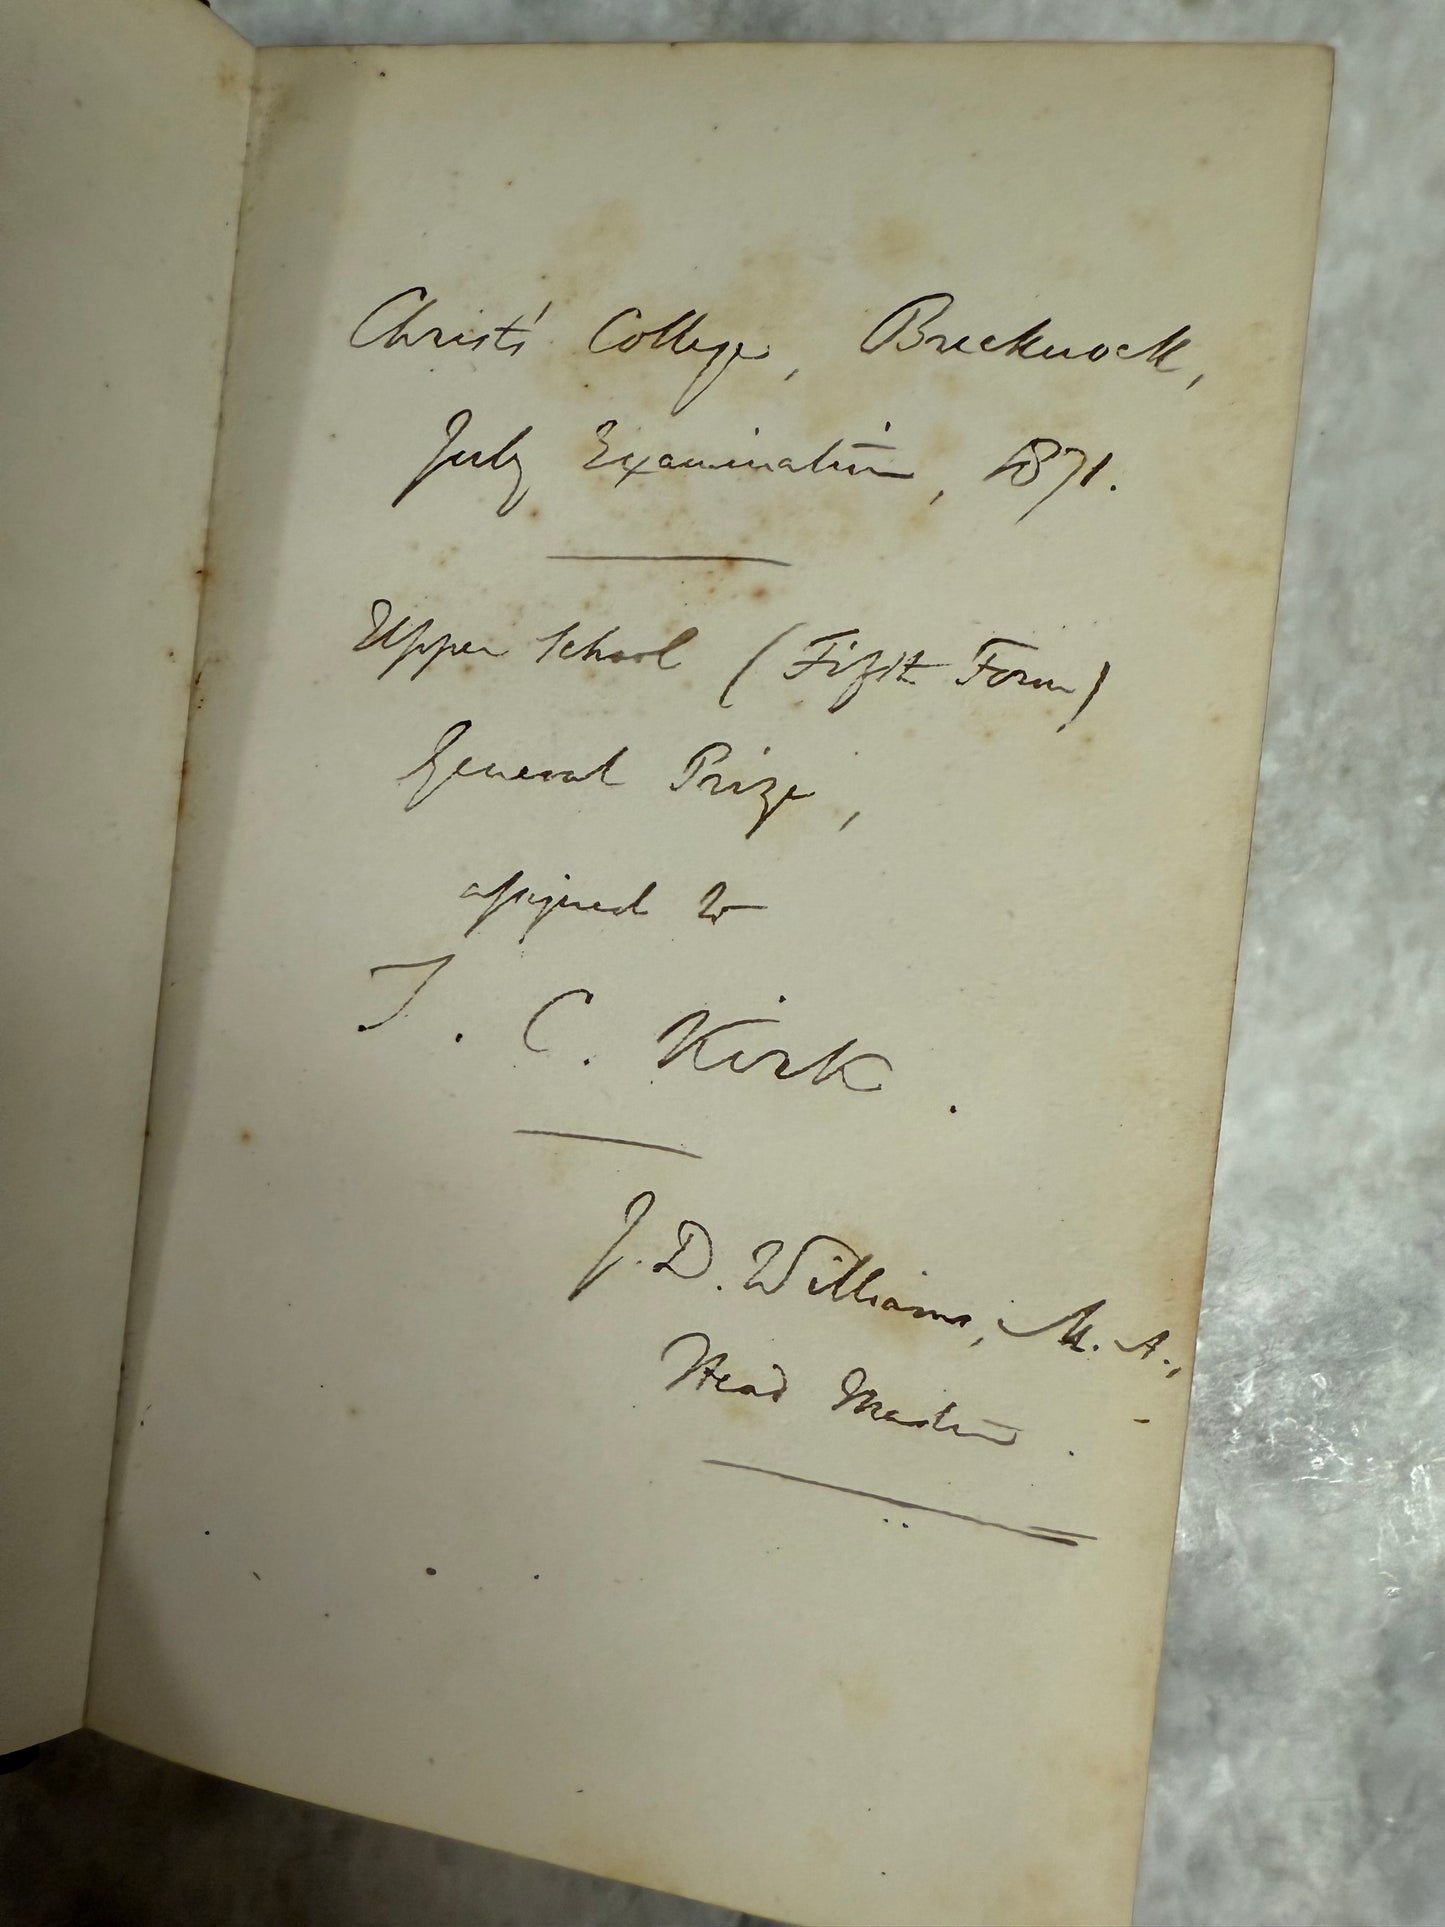 Christ's College, Brecknock,
July Examination, 1871.
Upper School (Fifth Form)
General Prize,
assigned to
T. C. Kirk.
J. D. Williams, M. A.,
Head Master.